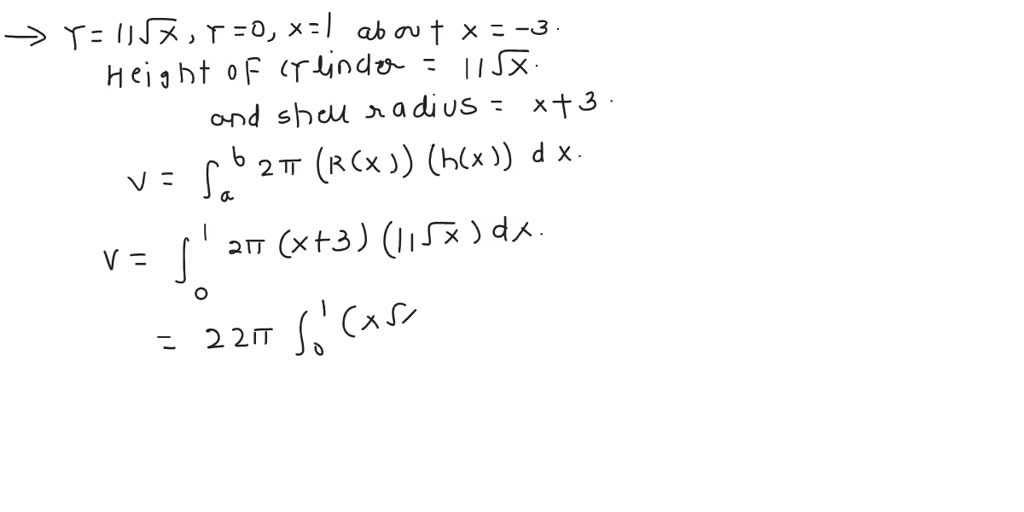 → Y = 11√x, Y=0, x=1 about x = -3.
Height of cylinder = 11√x.
and shell radius = x+3.
V = ∫_a^b 2π (R(x)) (h(x)) dx.
V = ∫_0^1 2π (x+3) (11√x) dx.
= 22π ∫_0^1 (x√